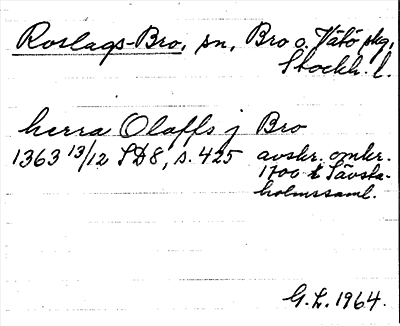 Roslags-Bro, sn, Bro o. Vätö skg,
Stockh. l.
herra Olaffs j Bro
1363 13/12 SD8, s. 425 avskr. omkr.
1700 t Sävsta-
holmssaml.
G.L. 1964.